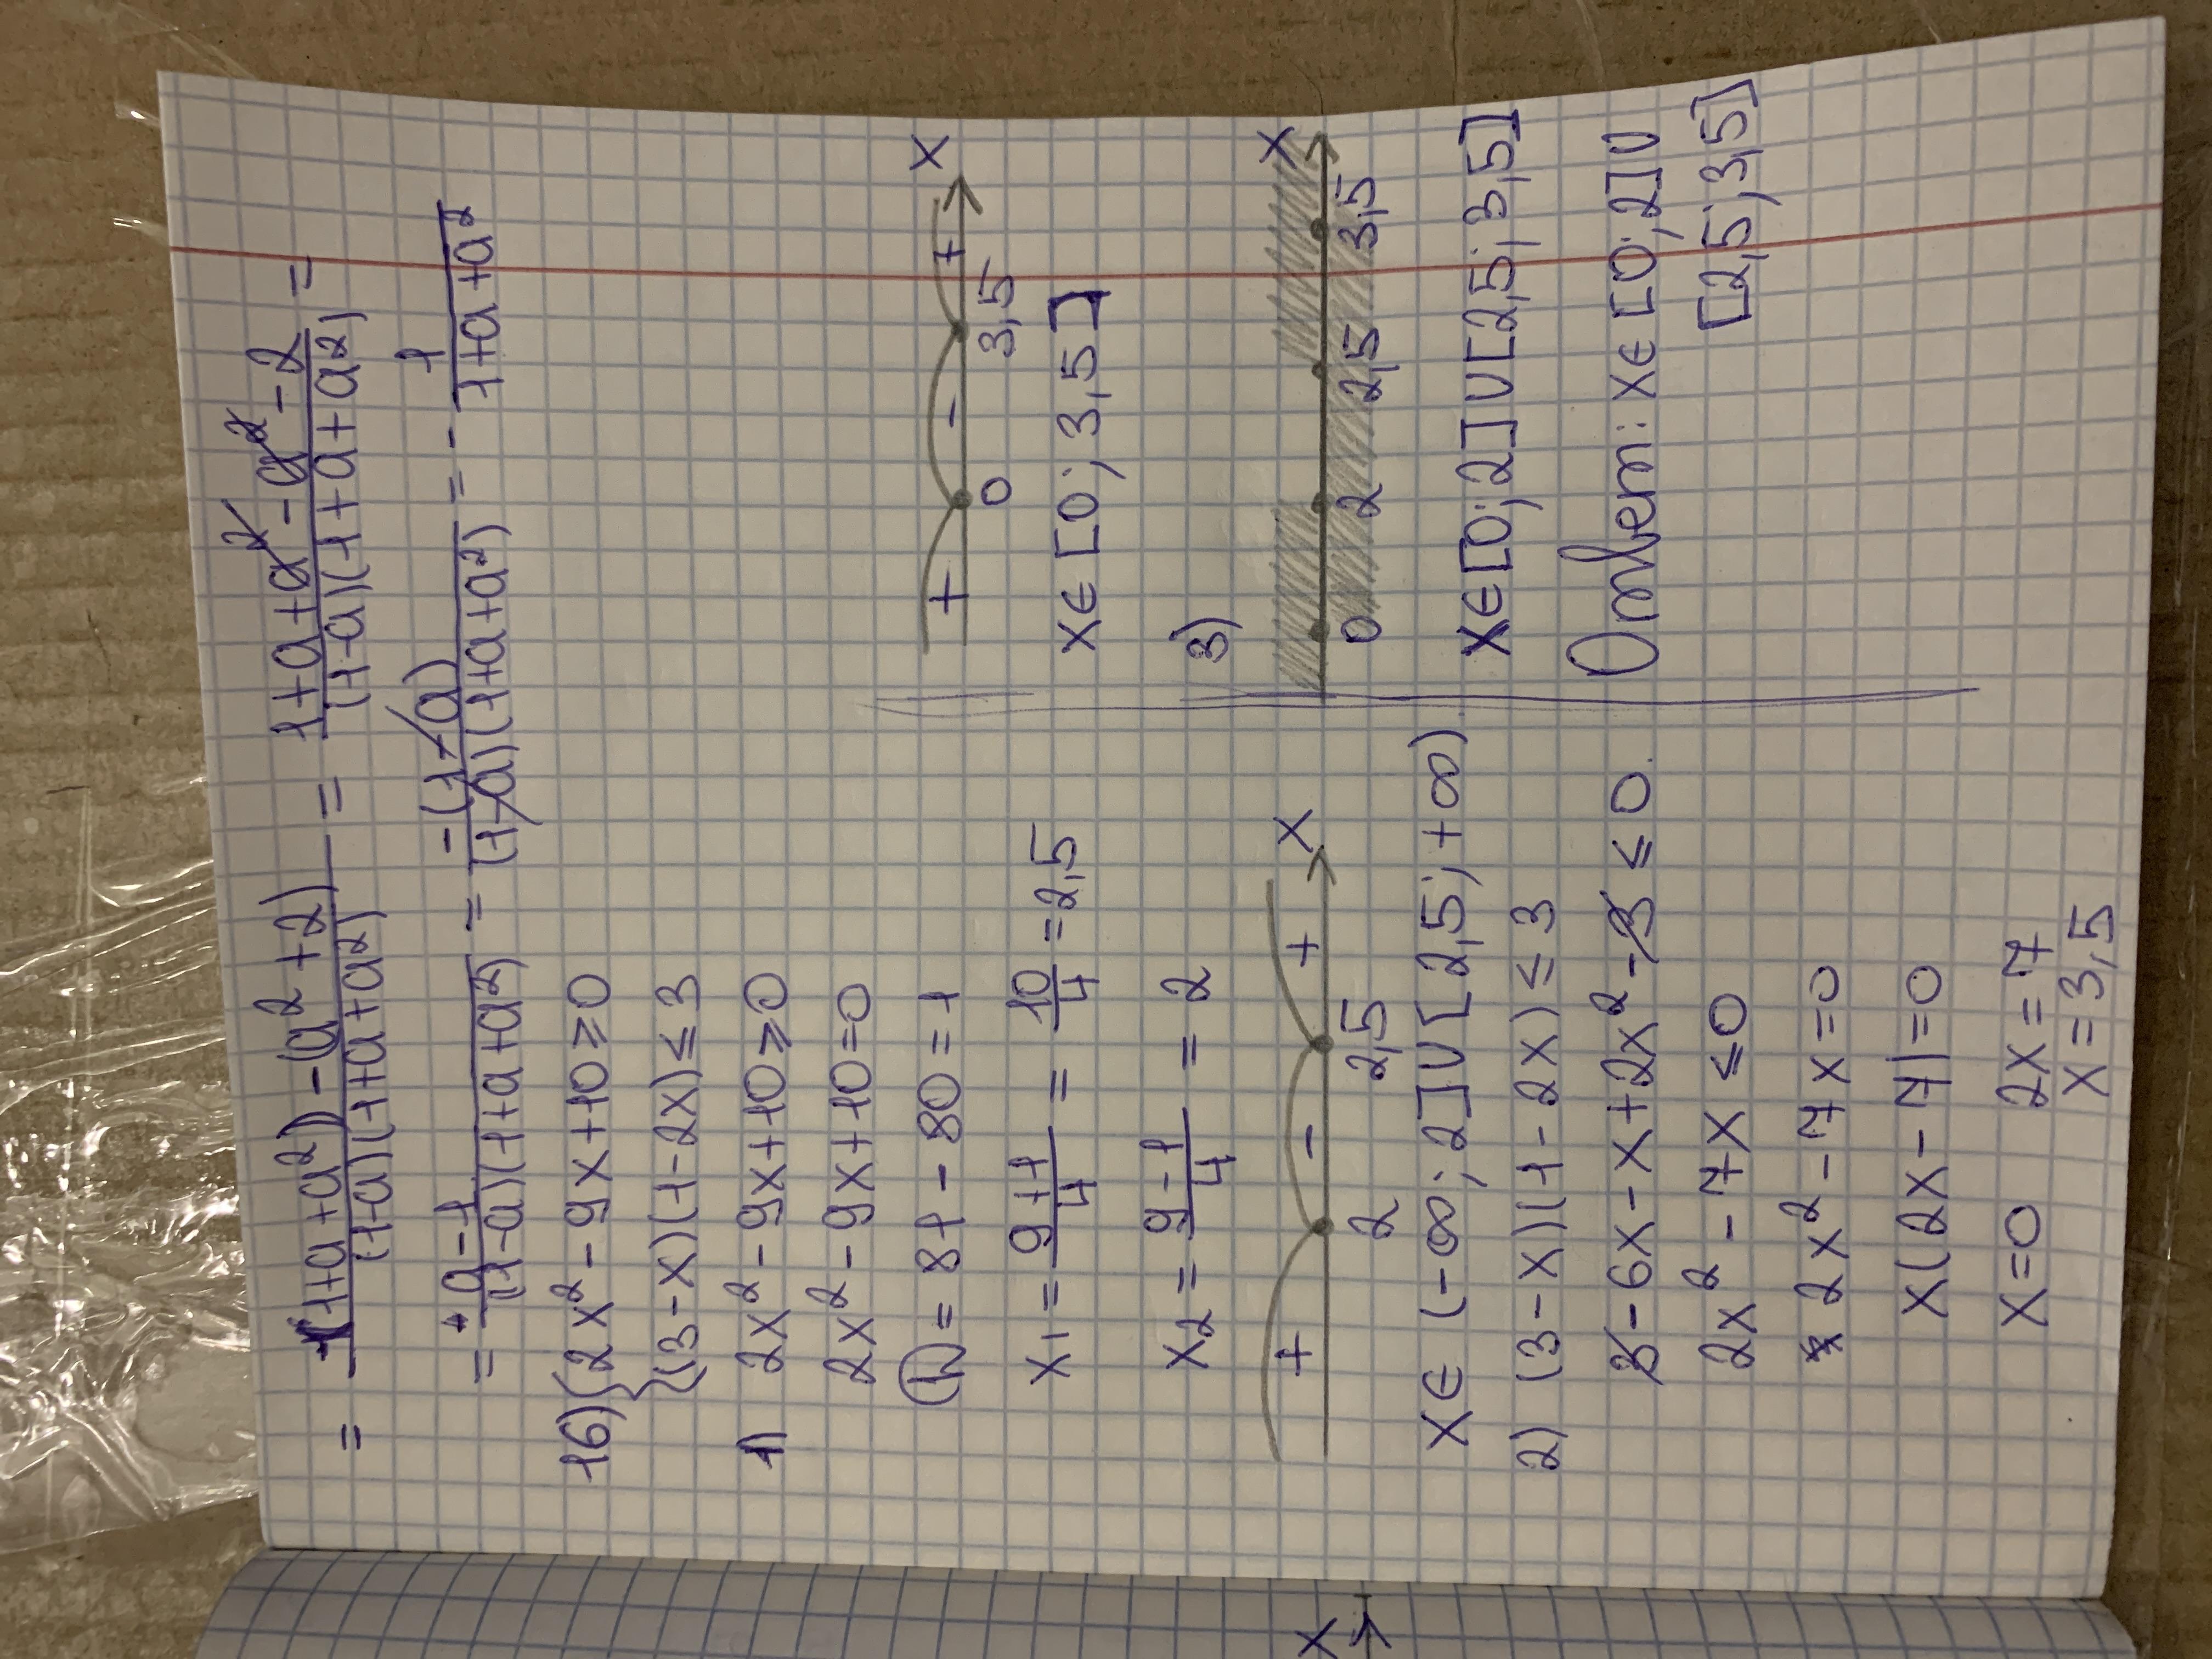 = (1+a+a²)-(a²+2) / (1-a)(1+a+a²) = 1+a+a²-a²-2 / (1-a)(1+a+a²) =
= a-1 / (1-a)(1+a+a²) = -(1-a) / (1-a)(1+a+a²) = - 1 / 1+a+a²
16) { 2x²-9x+10≥0
(3-x)(1-2x)≤3
1) 2x²-9x+10≥0
2x²-9x+10=0
D=81-80=1
x₁= 9+1 / 4 = 10 / 4 =2,5
x₂= 9-1 / 4 = 2
+ - + x
2 2,5
x∈(-∞;2]∪[2,5;+∞)
2) (3-x)(1-2x)≤3
3-6x-x+2x²-3≤0
2x²-7x≤0
2x²-7x=0
x(2x-7)=0
x=0 2x=7
x=3,5
+ - + x
0 3,5
x∈[0;3,5]
3)
x
0 2 2,5 3,5
x∈[0;2]∪[2,5;3,5]
Ответ: x∈[0;2]∪
[2,5;3,5]
x